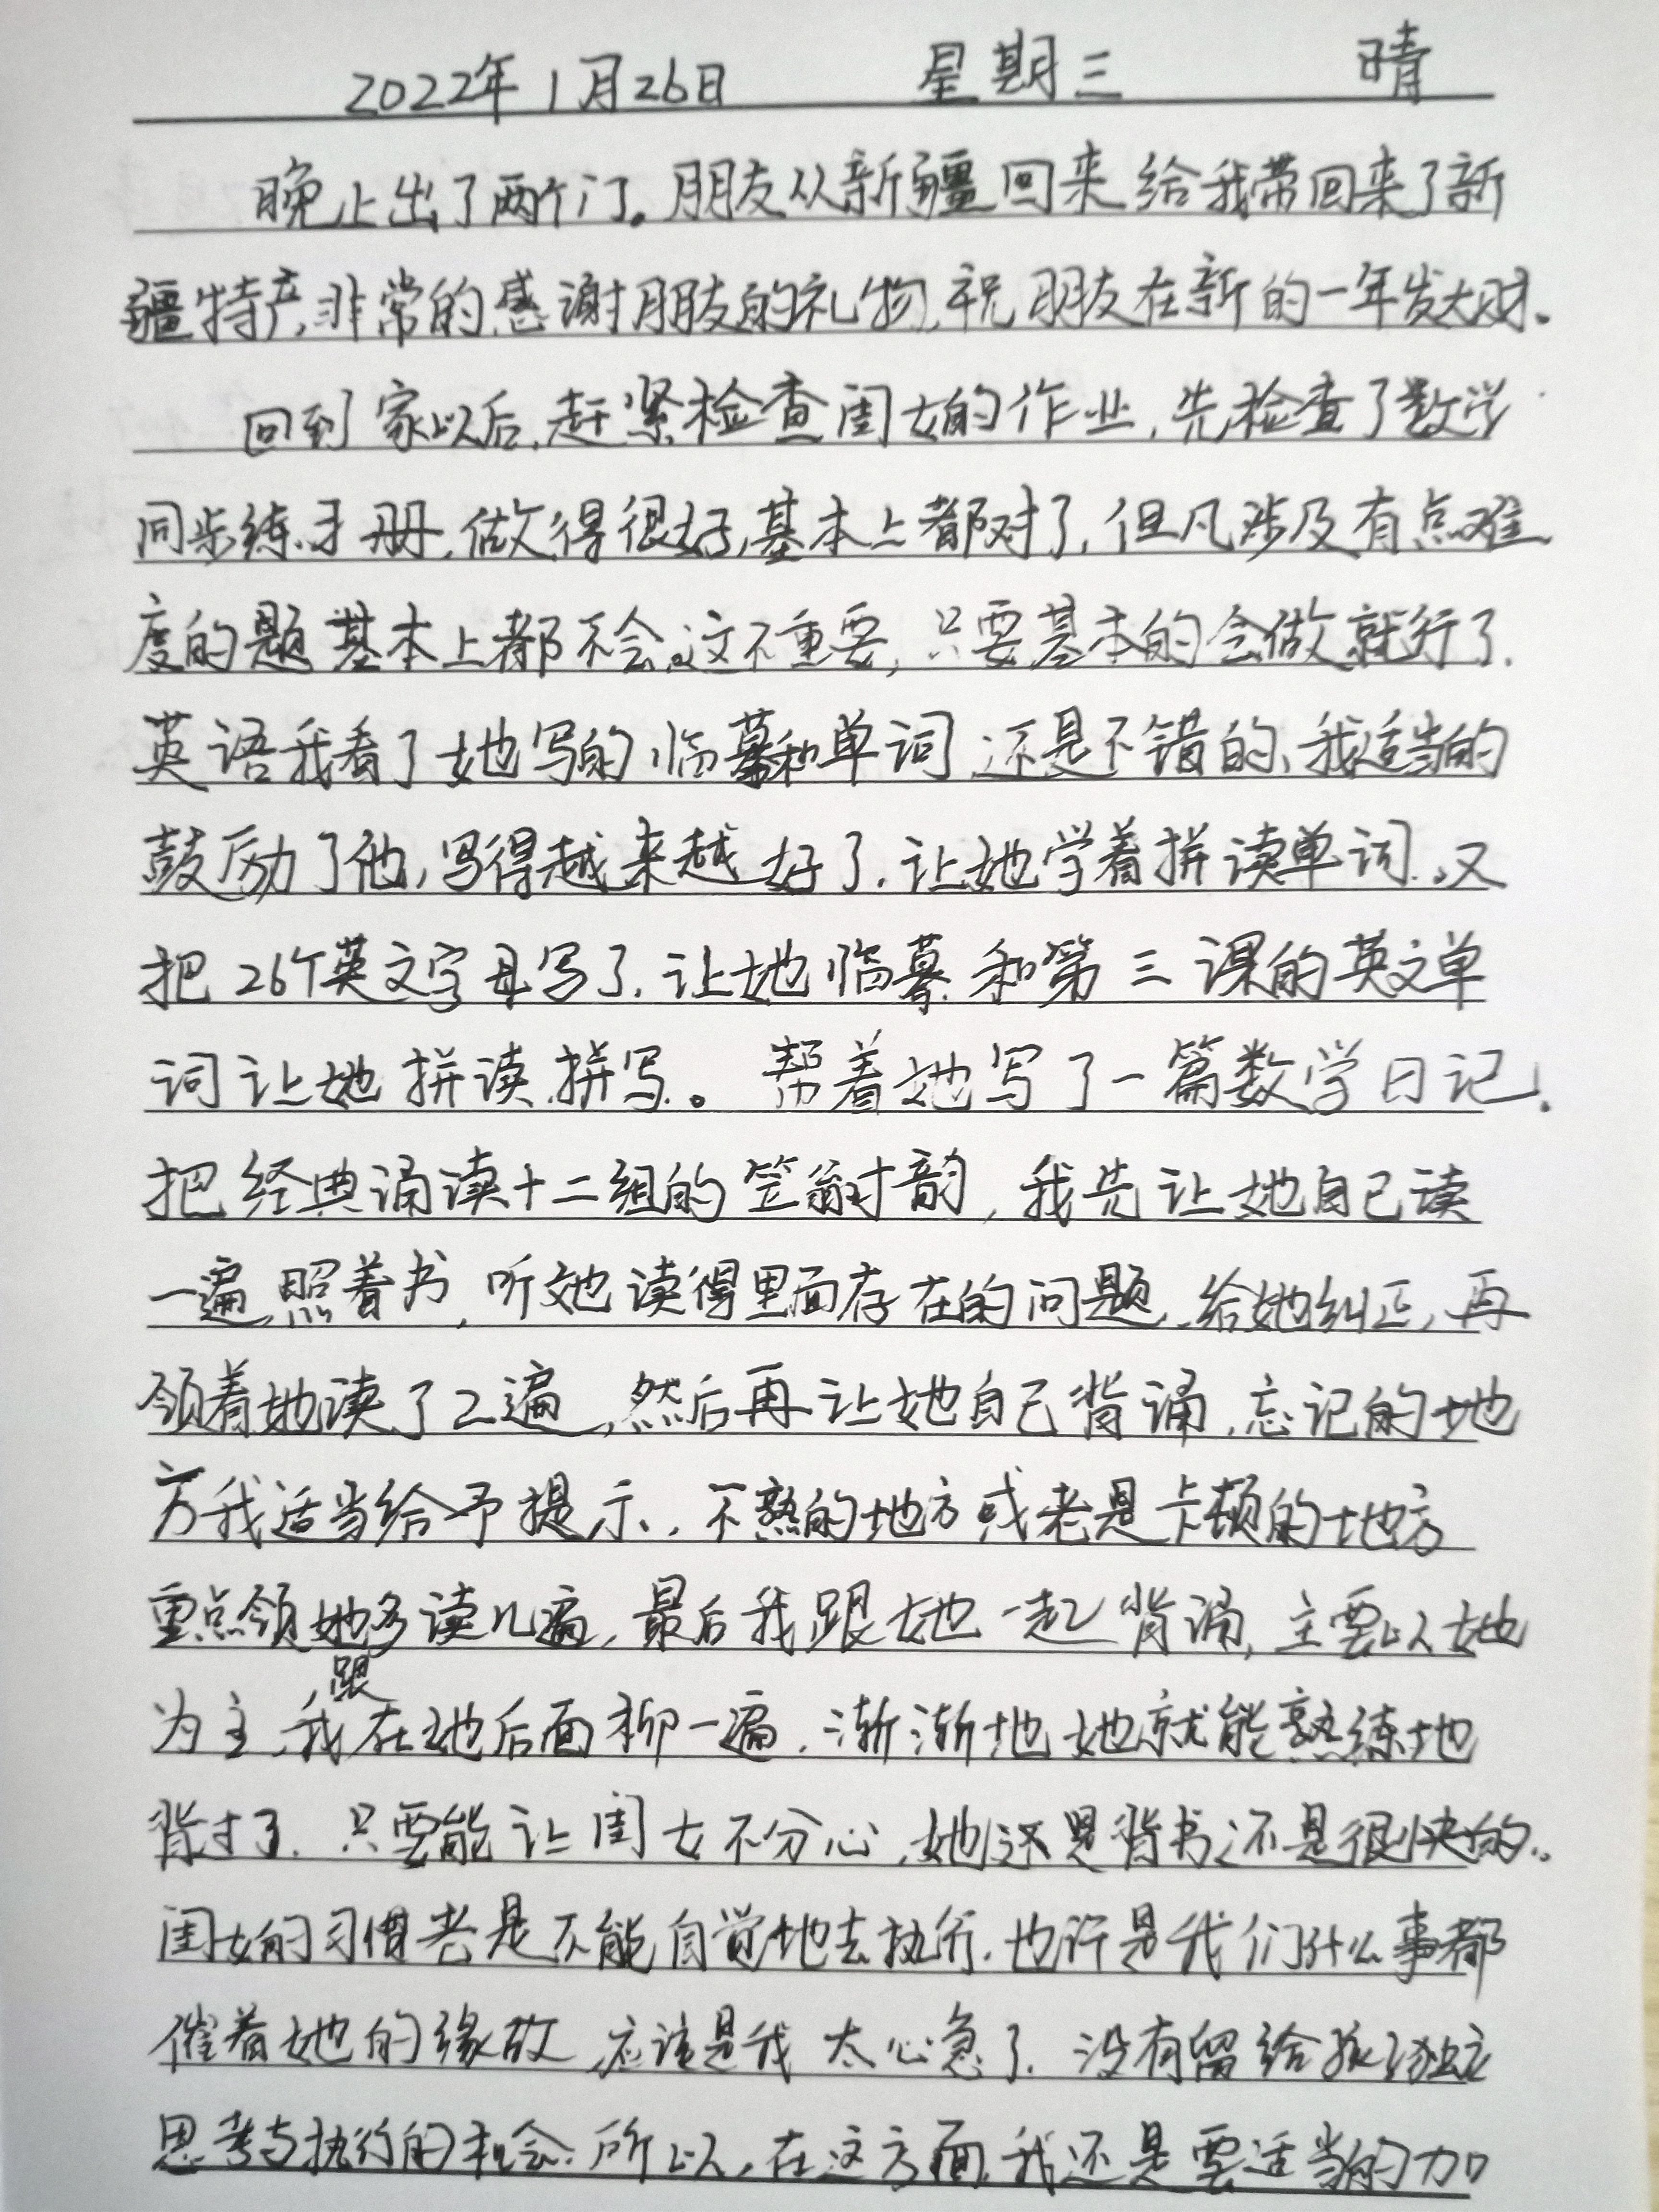 2022年1月26日 星期三 晴
晚上出了两个门。朋友从新疆回来给我带回来了新
疆特产,非常的感谢朋友的礼物,祝朋友在新的一年发大财。
回到家以后,赶紧检查闺女的作业,先检查了数学
同步练习册,做得很好,基本上都对了,但凡涉及有点难
度的题基本上都不会,这不重要,只要基本的会做就行了.
英语我看了她写的临摹和单词,还是不错的、我适当的
鼓励了他,写得越来越好了.让她学着拼读单词.又
把26个英文字母写了.让她临摹.和第三课的英文单
词让她拼读.拼写.。帮着她写了一篇数学日记.
把经典诵读十二组的笠翁对韵,我先让她自己读
一遍,照着书,听她读得里面存在的问题,给她纠正,再
领着她读了2遍,然后再让她自己背诵,忘记的地
方我适当给予提示、,不熟的地方或老是卡顿的地方
重点领她多读几遍,最后我跟她一起背诵,主要以她
为主,我跟在她后面一遍.渐渐地她就能熟练地
背过了.只要能让闺女不分心,她还是背书还是很快的.
闺女的习惯老是不能自觉地去执行.也许是我们什么事都
催着她的缘故,应该是我太心急了.没有留给孩子独立
思考与执行的机会.所以,在这方面,我还是要适当的加